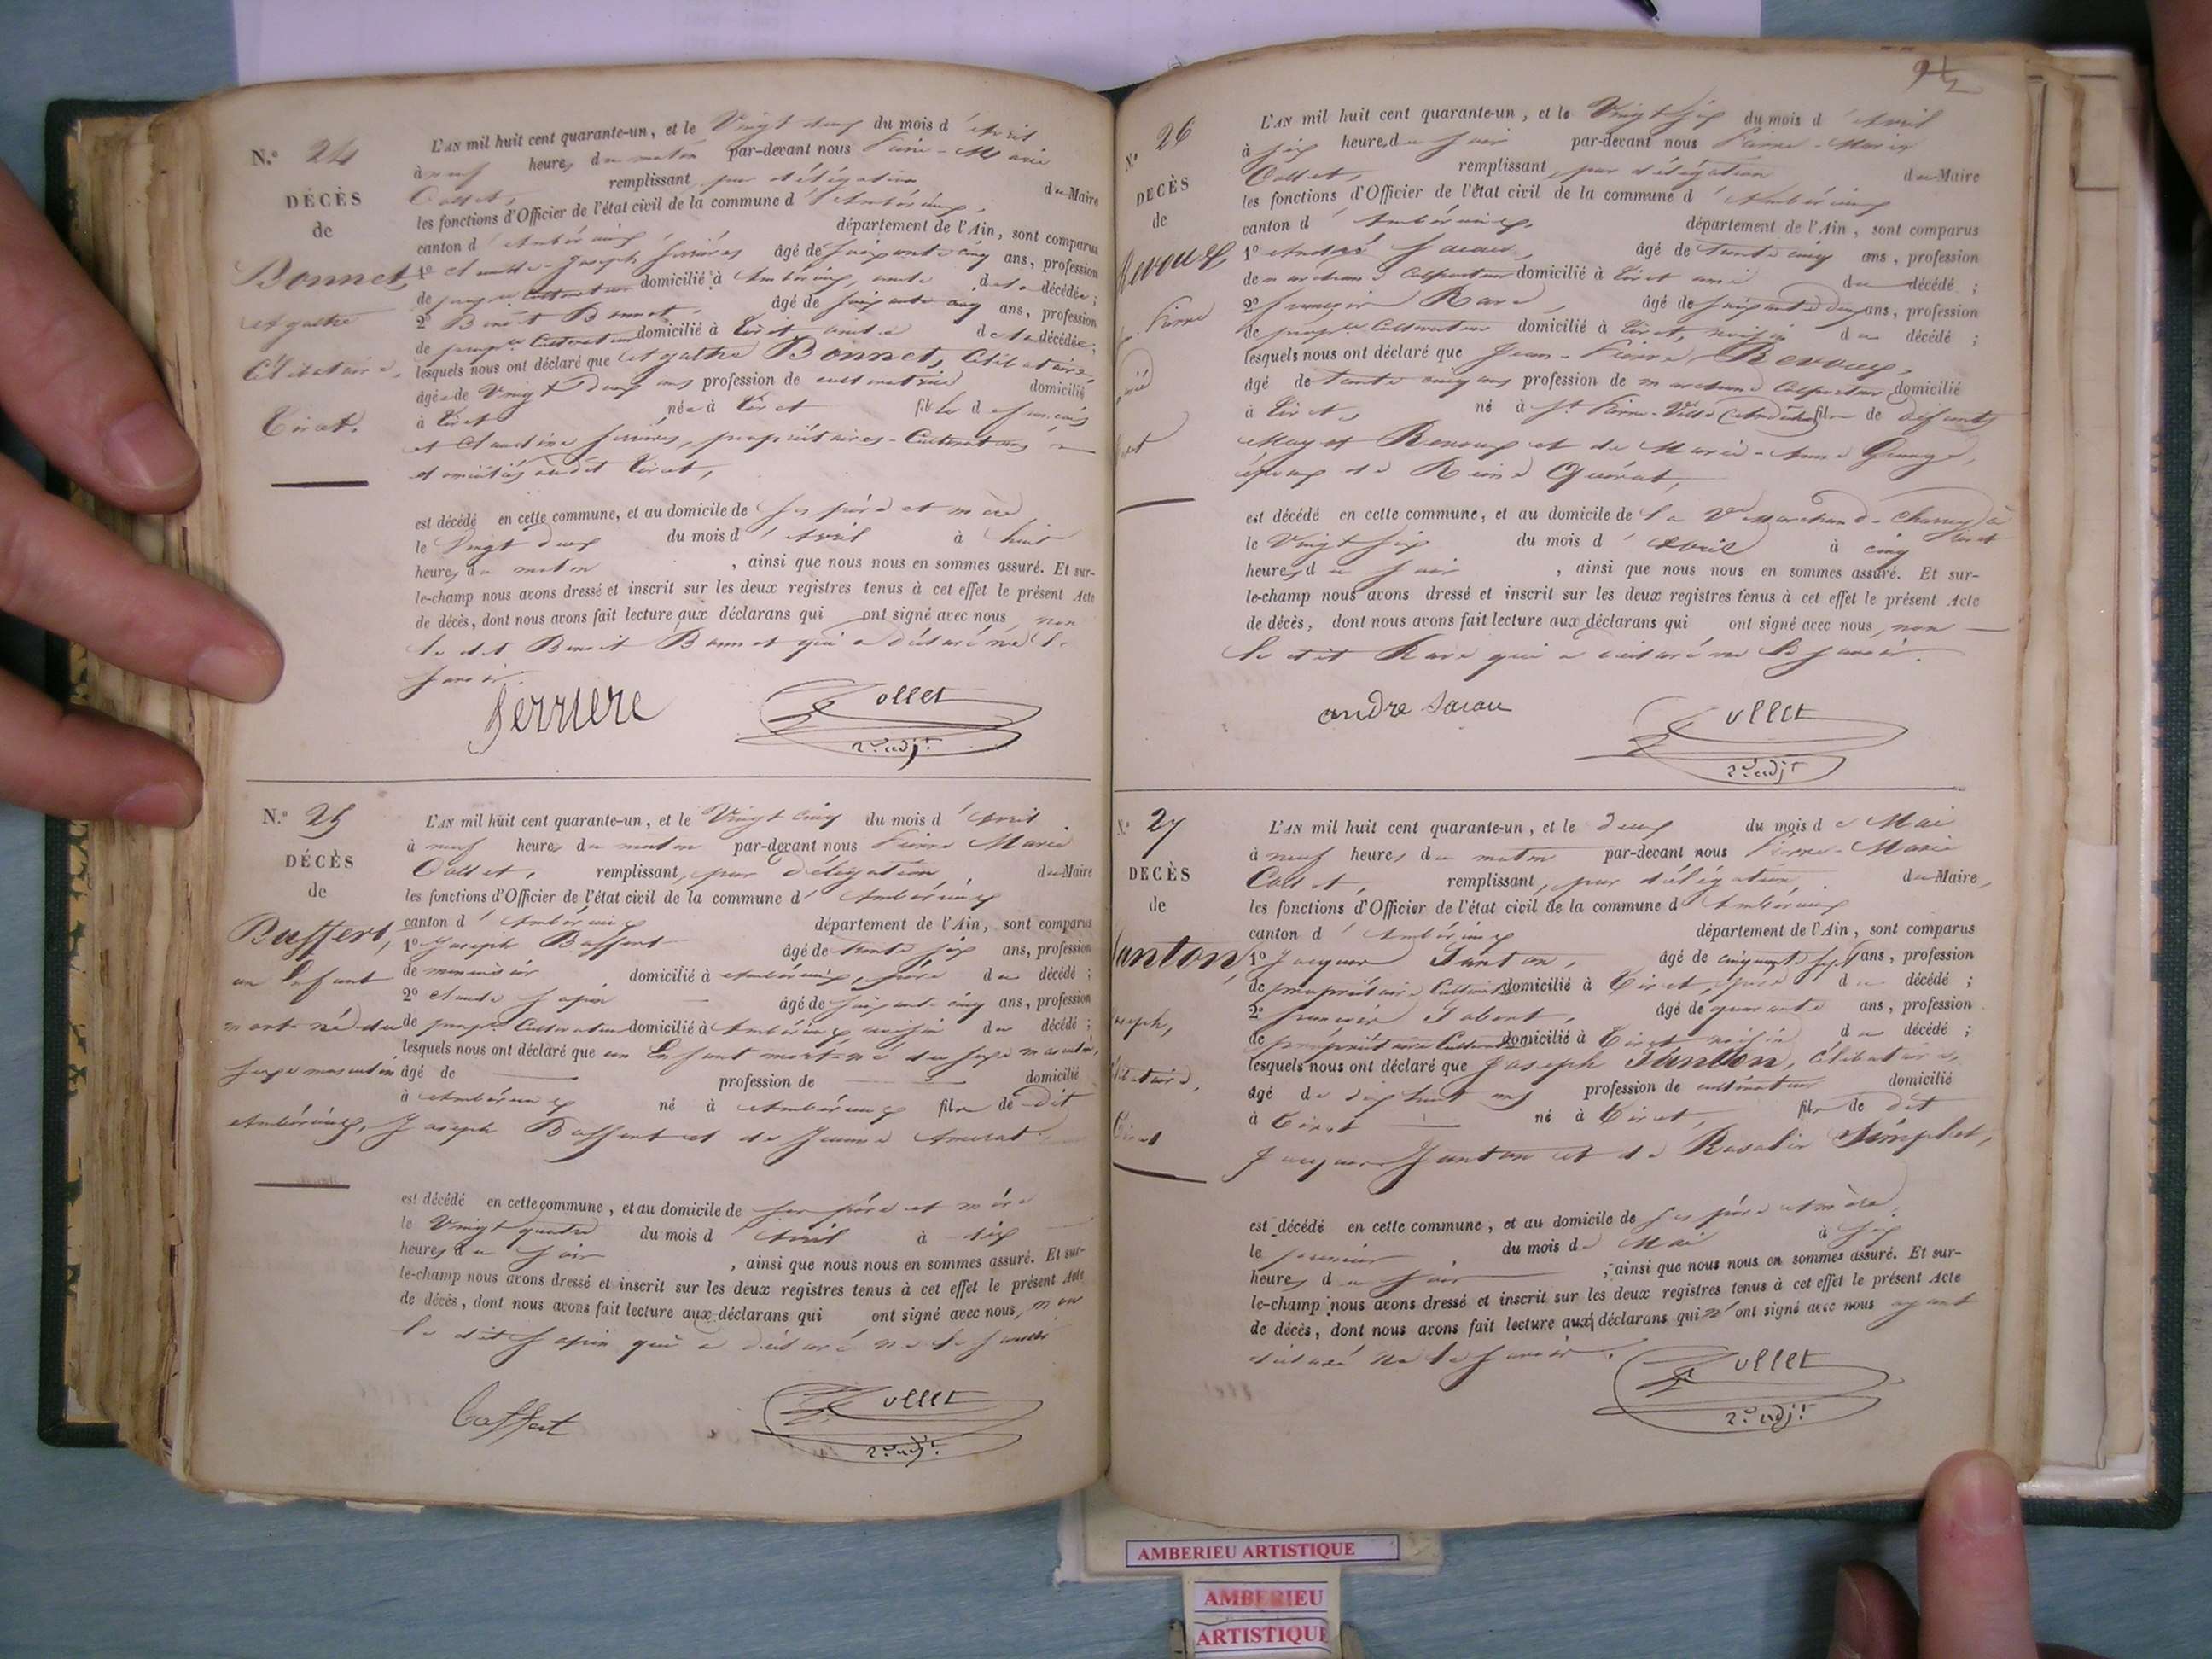 N.º 24
DÉCÈS
de
Bonnet,
Agathe
Célibataire,
Tiret.
L'AN mil huit cent quarante-un, et le Vingt deux du mois d'Avril
à neuf heures du matin par-devant nous Pierre-Marie
Collet, remplissant par délégation du Maire
les fonctions d'Officier de l'état civil de la commune d'Ambérieux,
canton d'Ambérieux département de l'Ain, sont comparus
1º Claude-Joseph Ferrières âgé de soixante cinq ans, profession
de propre Cultivateur domicilié à Ambérieux, oncle de la décédée;
2º Benoit Bonnet, âgé de soixante cinq ans, profession
de propre Cultivateur domicilié à Tiret oncle de la décédée;
lesquels nous ont déclaré que Agathe Bonnet, Célibataire,
âgée de Vingt Deux ans profession de cultivatrice domicilié
à Tiret née à Tiret fille de François
et Claudine Ferrières, propriétaires-Cultivateurs
et domiciliés audit Tiret,
est décédé en cette commune, et au domicile de ses père et mère
le Vingt deux du mois d'Avril à huit
heures du matin, ainsi que nous nous en sommes assuré. Et sur-
le-champ nous avons dressé et inscrit sur les deux registres tenus à cet effet le présent Acte
de décès, dont nous avons fait lecture aux déclarans qui ont signé avec nous, non
le dit Benoit Bonnet qui a déclaré ne le
savoir.
ferriere Collet
2e adjt
N.º 25
DÉCÈS
de
Buffert,
un Enfant
mort-né du
sexe masculin
Ambérieux,
L'AN mil huit cent quarante-un, et le Vingt cinq du mois d'Avril
à neuf heures du matin par-devant nous Pierre Marie
Collet, remplissant, par délégation, du Maire
les fonctions d'Officier de l'état civil de la commune d'Ambérieux
canton d'Ambérieux département de l'Ain, sont comparus
1º Joseph Buffert âgé de trente six ans, profession
de menuisier domicilié à Ambérieux, père du décédé;
2º Claude Sapin âgé de soixante cinq ans, profession
de propre Cultivateur domicilié à Ambérieux voisin du décédé;
lesquels nous ont déclaré que un Enfant mort-né du sexe masculin,
âgé de profession de domicilié
à Ambérieux né à Ambérieux fils de dit
Joseph Buffert et de Jeanne
est décédé en cette commune, et au domicile de ses père et mère
le Vingt quatre du mois d'Avril à dix
heures du soir, ainsi que nous nous en sommes assuré. Et sur-
le-champ nous avons dressé et inscrit sur les deux registres tenus à cet effet le présent Acte
de décès, dont nous avons fait lecture aux déclarans qui ont signé avec nous, non
le dit Sapin qui a déclaré ne le savoir
Collet
2e adjt
Nº 26
DÉCÈS
de
Revoux
Pierre
L'AN mil huit cent quarante-un, et le Vingt six du mois d'Avril
à six heures du soir par-devant nous Pierre-Marie
Collet, remplissant, par délégation du Maire
les fonctions d'Officier de l'état civil de la commune d'Ambérieux
canton d'Ambérieux, département de l'Ain, sont comparus
1º André Sacau, âgé de trente cinq ans, profession
de marchand Colporteur domicilié à Tiret ami du décédé;
2º François Rave, âgé de soixante deux ans, profession
de propre Cultivateur domicilié à Tiret, voisin du décédé;
lesquels nous ont déclaré que Jean-Pierre Revoux,
âgé de trente cinq ans profession de marchand Colporteur domicilié
à Tiret, né à St Pierre-Ville fils de défunts
Revoux et de Marie-Anne
époux de Reine
est décédé en cette commune, et au domicile de la Ve
le Vingt six du mois d'Avril à cinq
heures du soir, ainsi que nous nous en sommes assuré. Et sur-
le-champ nous avons dressé et inscrit sur les deux registres tenus à cet effet le présent Acte
de décès, dont nous avons fait lecture aux déclarans qui ont signé avec nous, non
le dit Rave qui a déclaré ne le savoir.
andre sacau Collet
2e adjt
Nº 27
DÉCÈS
de
Janton,
Joseph,
Célibataire,
Tiret
L'AN mil huit cent quarante-un, et le deux du mois de Mai
à neuf heures du matin par-devant nous Pierre-Marie
Collet, remplissant, par délégation, du Maire,
les fonctions d'Officier de l'état civil de la commune d'Ambérieux
canton d'Ambérieux département de l'Ain, sont comparus
1º Jacques Janton, âgé de cinquante sept ans, profession
de propriétaire Cultivateur domicilié à Tiret, père du décédé;
2º François Jabert, âgé de quarante ans, profession
de propriétaire Cultivateur domicilié à Tiret voisin du décédé;
lesquels nous ont déclaré que Joseph Janton, Célibataire,
âgé de dix huit ans profession de cultivateur domicilié
à Tiret né à Tiret, fils de dit
Jacques Janton et de Rosalie Simplet,
est décédé en cette commune, et au domicile de ses père et mère,
le premier du mois de Mai à six
heures du soir, ainsi que nous nous en sommes assuré. Et sur-
le-champ nous avons dressé et inscrit sur les deux registres tenus à cet effet le présent Acte
de décès, dont nous avons fait lecture aux déclarans qui n'ont signé avec nous ayant
déclaré ne le savoir.
Collet
2e adjt
AMBERIEU ARTISTIQUE
AMBERIEU
ARTISTIQUE